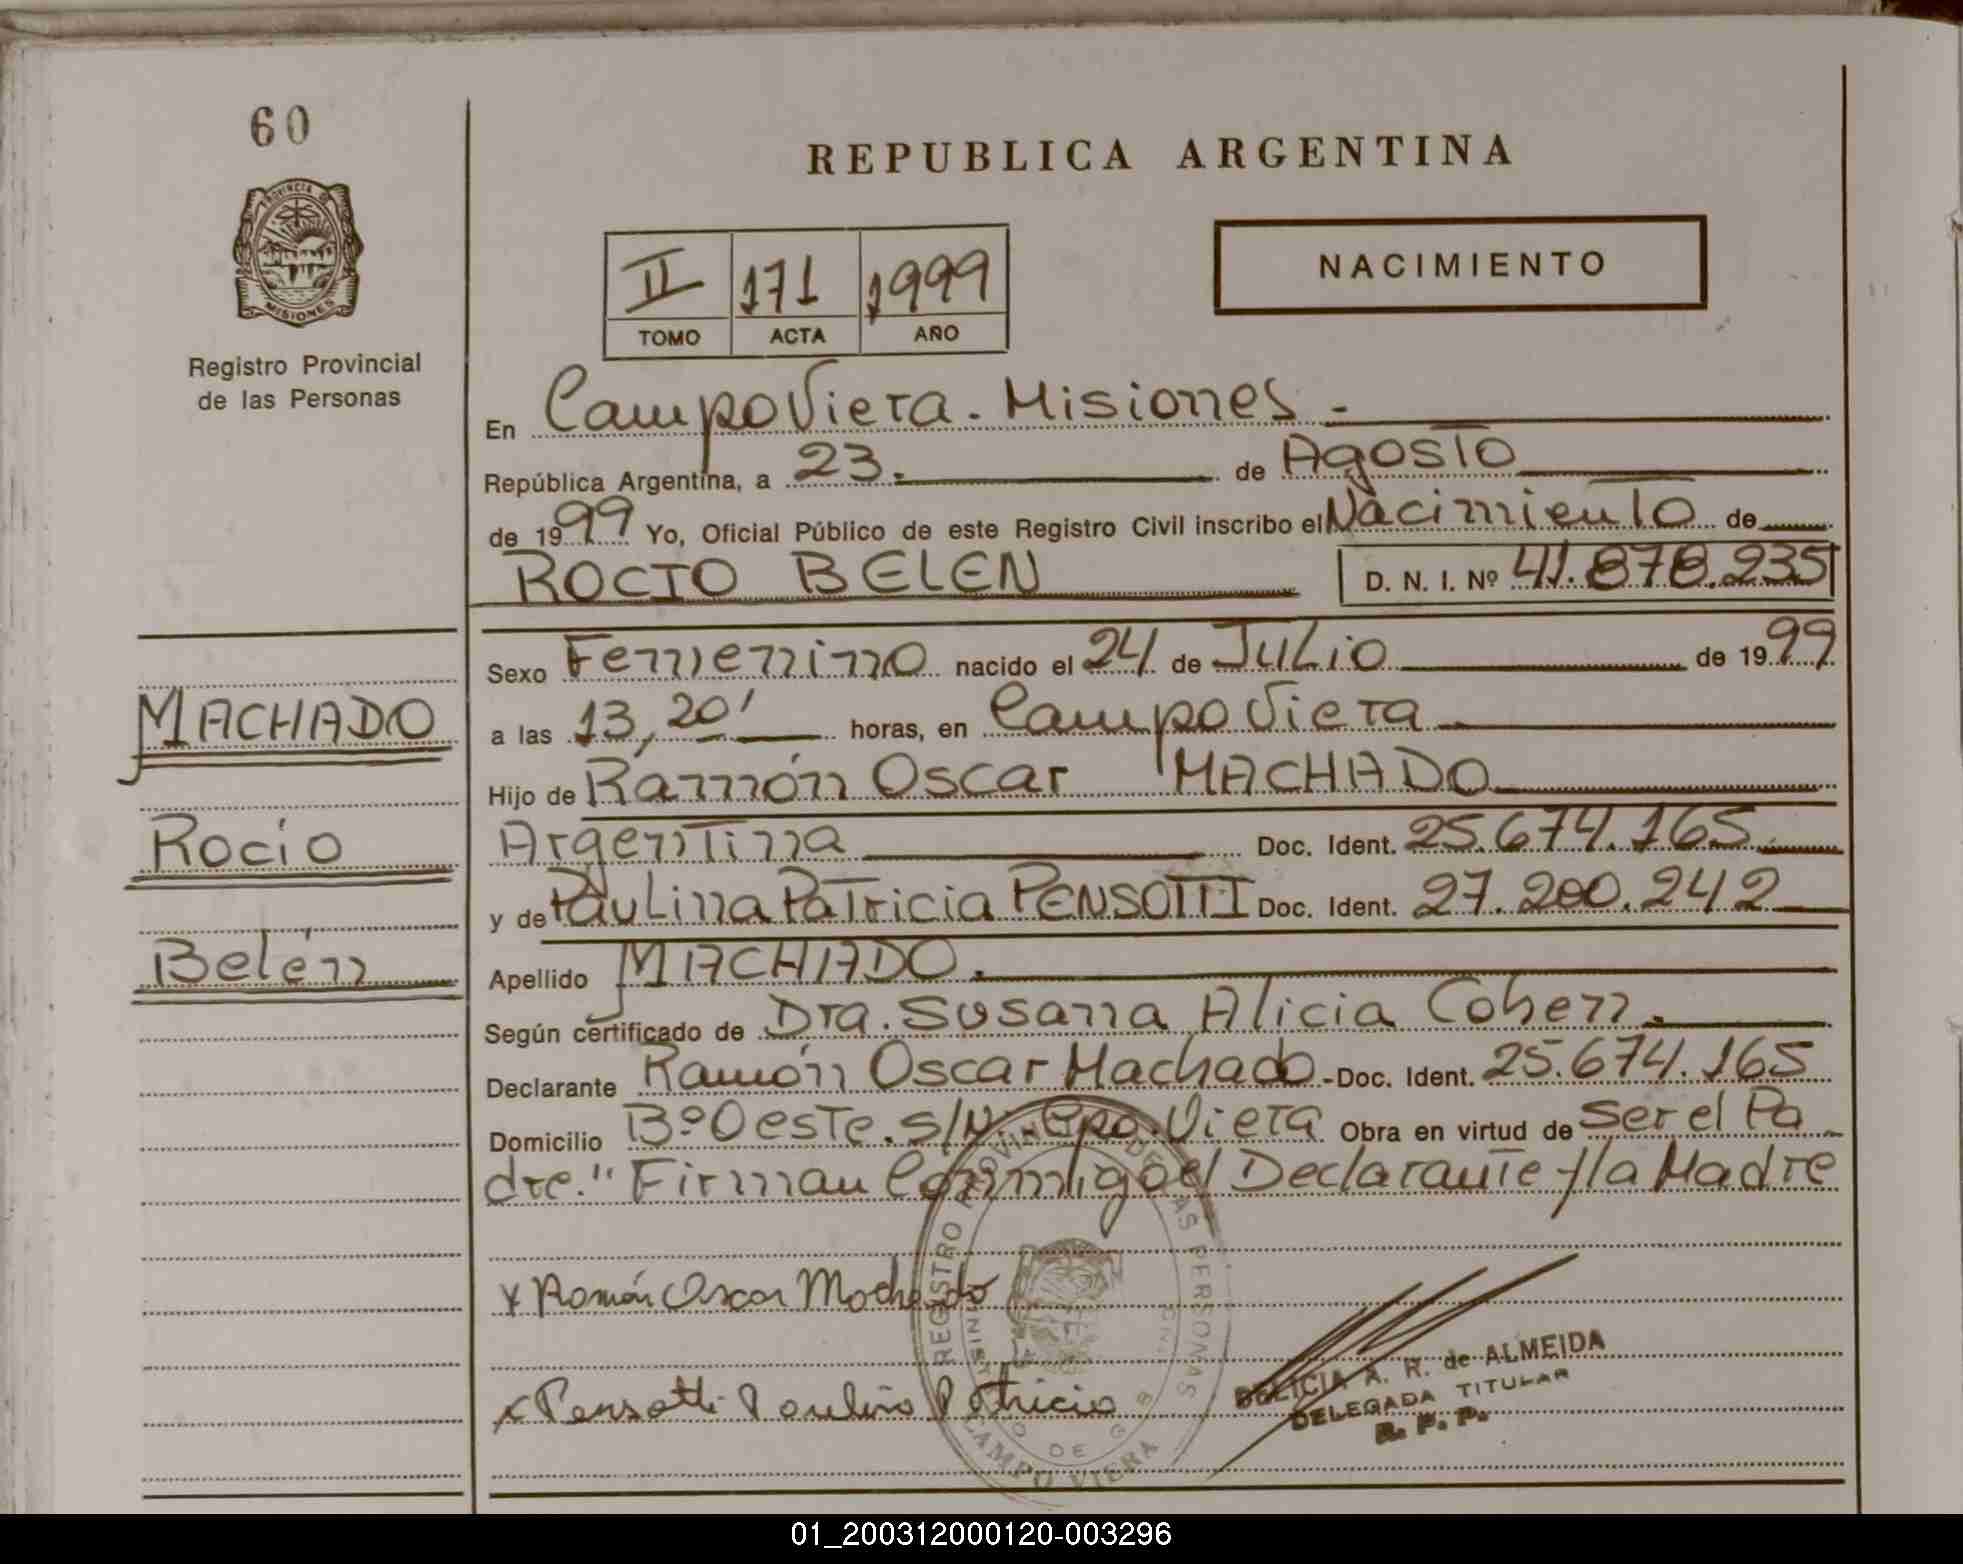 60
PROVINCIA DE
MISIONES
Registro Provincial
de las Personas
REPUBLICA ARGENTINA
II 171 1999
TOMO ACTA AÑO
NACIMIENTO
En Campo Viera. Misiones.-
República Argentina, a 23. de Agosto
de 1999 Yo, Oficial Público de este Registro Civil inscribo el Nacimiento de
ROCIO BELEN D. N. I. Nº 41.878.235
Sexo Femenino nacido el 24 de Julio de 1999
MACHADO
a las 13,20' horas, en Campo Viera
Hijo de Ramón Oscar MACHADO
Rocío
Argentina Doc. Ident. 25.674.165
y de Paulina Patricia PENSOTTI Doc. Ident. 27.200.242
Belén
Apellido MACHADO.
Según certificado de Dra. Susana Alicia Cohen.
Declarante Ramón Oscar Machado.-Doc. Ident. 25.674.165
Domicilio Bº Oeste. s/N.-Cpo.Viera Obra en virtud de ser el Pa
dre." Firman Conmigo el Declarante y la Madre
x Ramón Oscar Machado
x Pensotti Paulina Patricia
REGISTRO PROVINCIAL DE LAS PERSONAS
CAMPO VIERA
DELICIA A. R. de ALMEIDA
DELEGADA TITULAR
R. P. P.
01_200312000120-003296